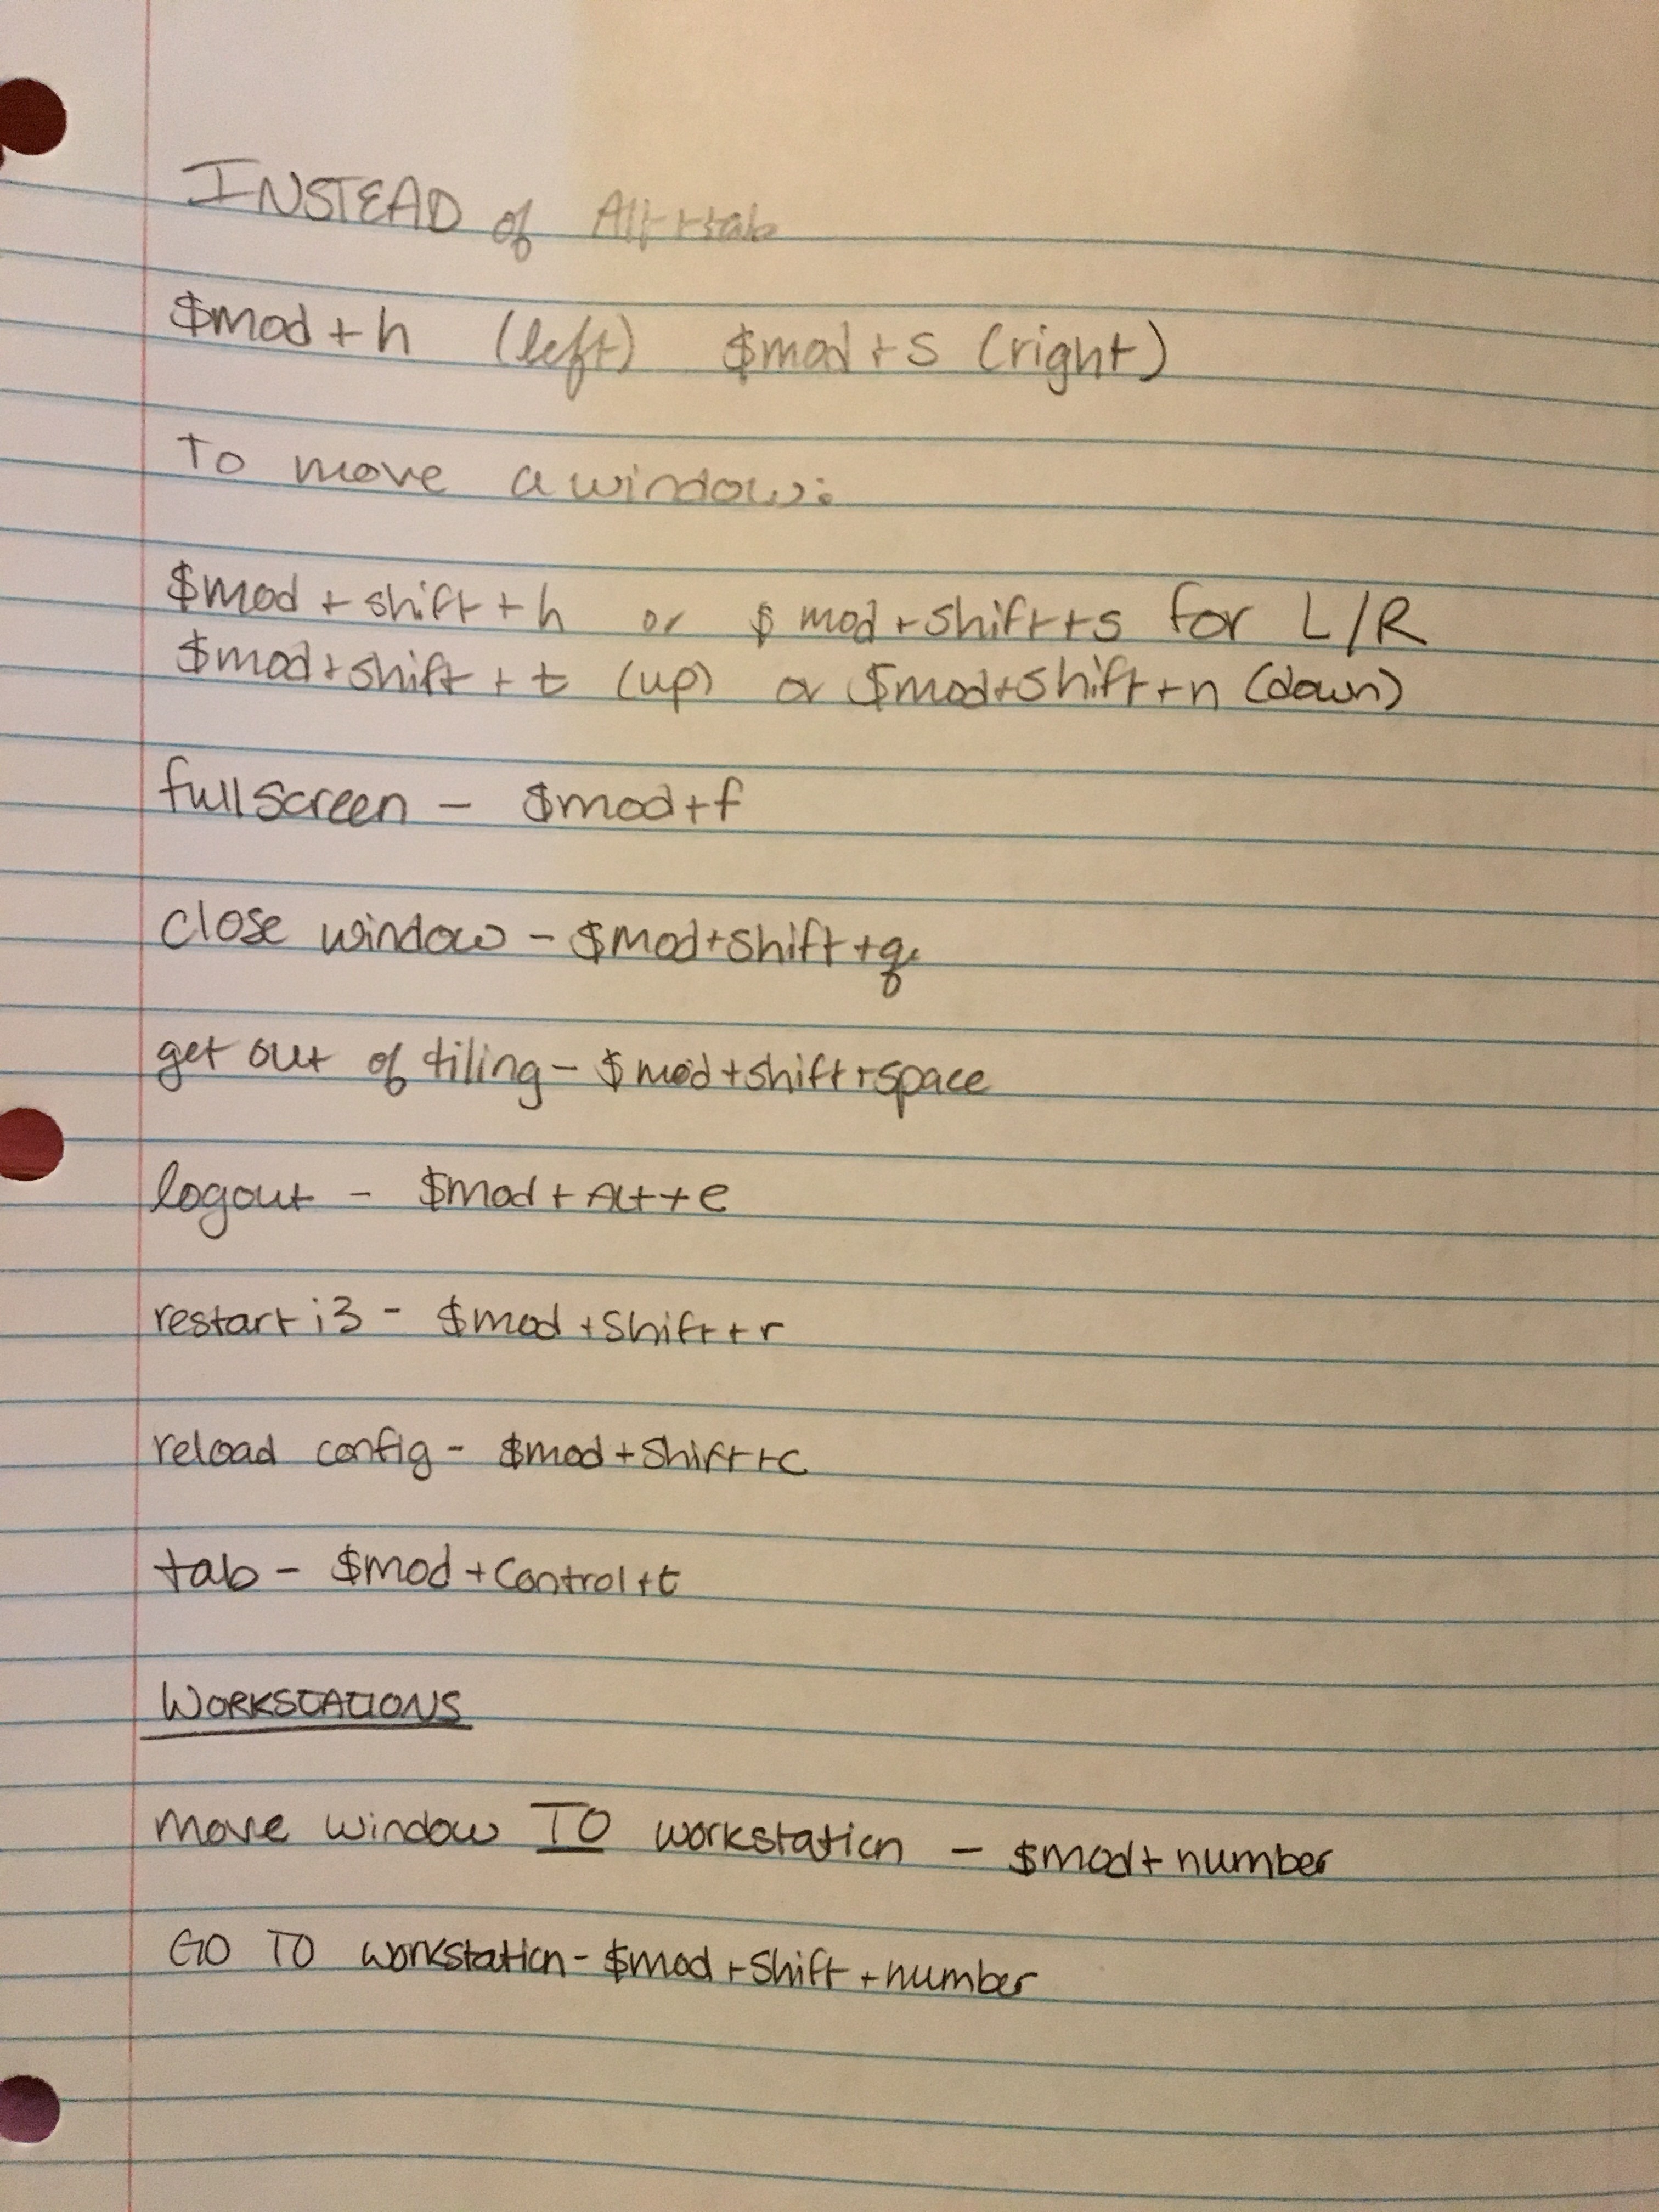 INSTEAD of Alt+tab
$mod+h (left) $mod+s (right)
To move a window:
$mod+shift+h or $mod+shift+s for L/R
$mod+shift+t (up) or $mod+shift+n (down)
fullscreen - $mod+f
close window - $mod+shift+q
get out of tiling - $mod+shift+space
logout - $mod+Alt+e
restart i3 - $mod+shift+r
reload config - $mod+shift+c
tab - $mod+control+t
WORKSTATIONS
move window TO workstation - $mod+number
GO TO workstation - $mod+shift+number